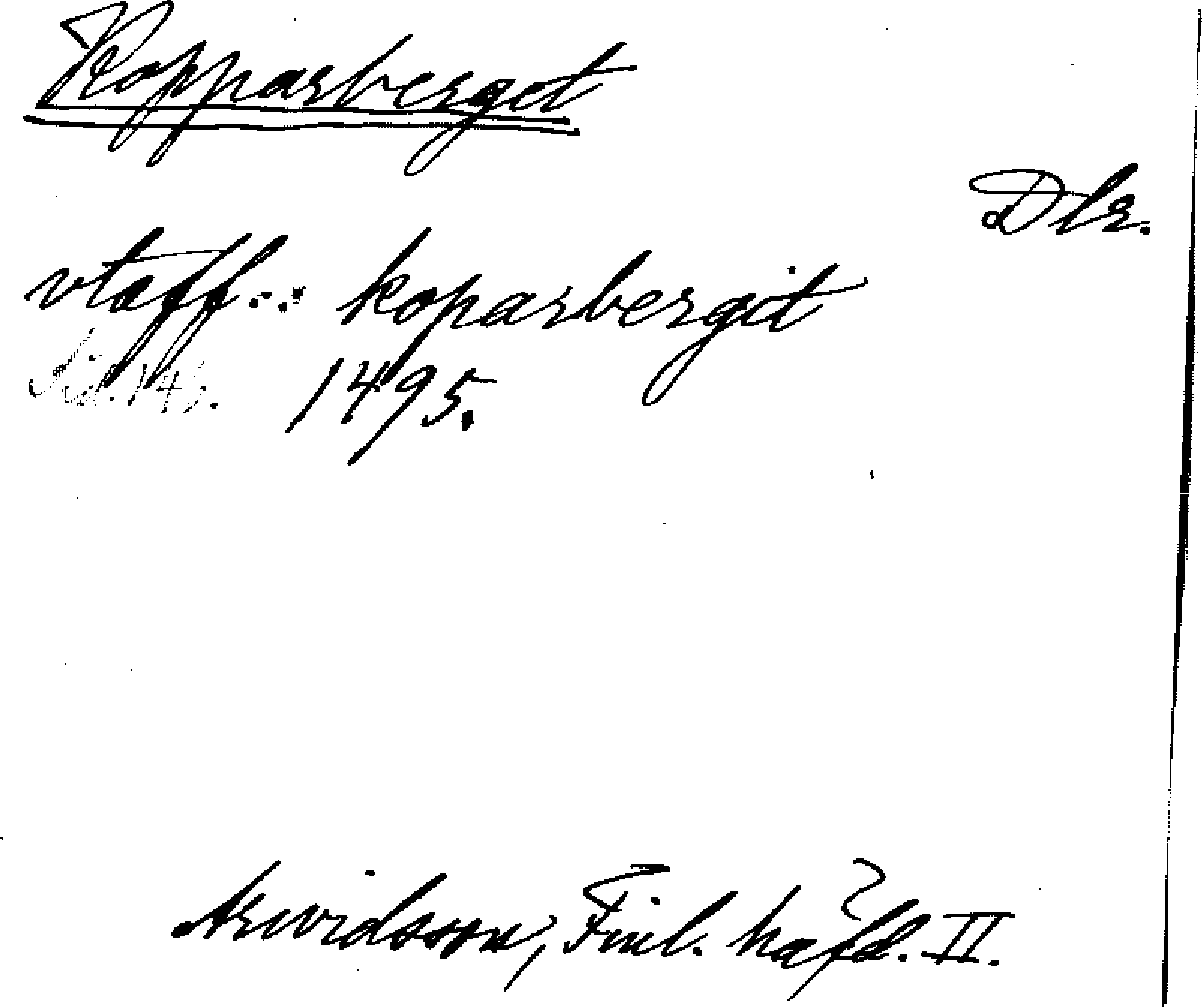 Kopparberget
Dlr.
vtaff..: koparbergit
Sid. 146. 1495.
Arwidsson, Finl. häfd. II.